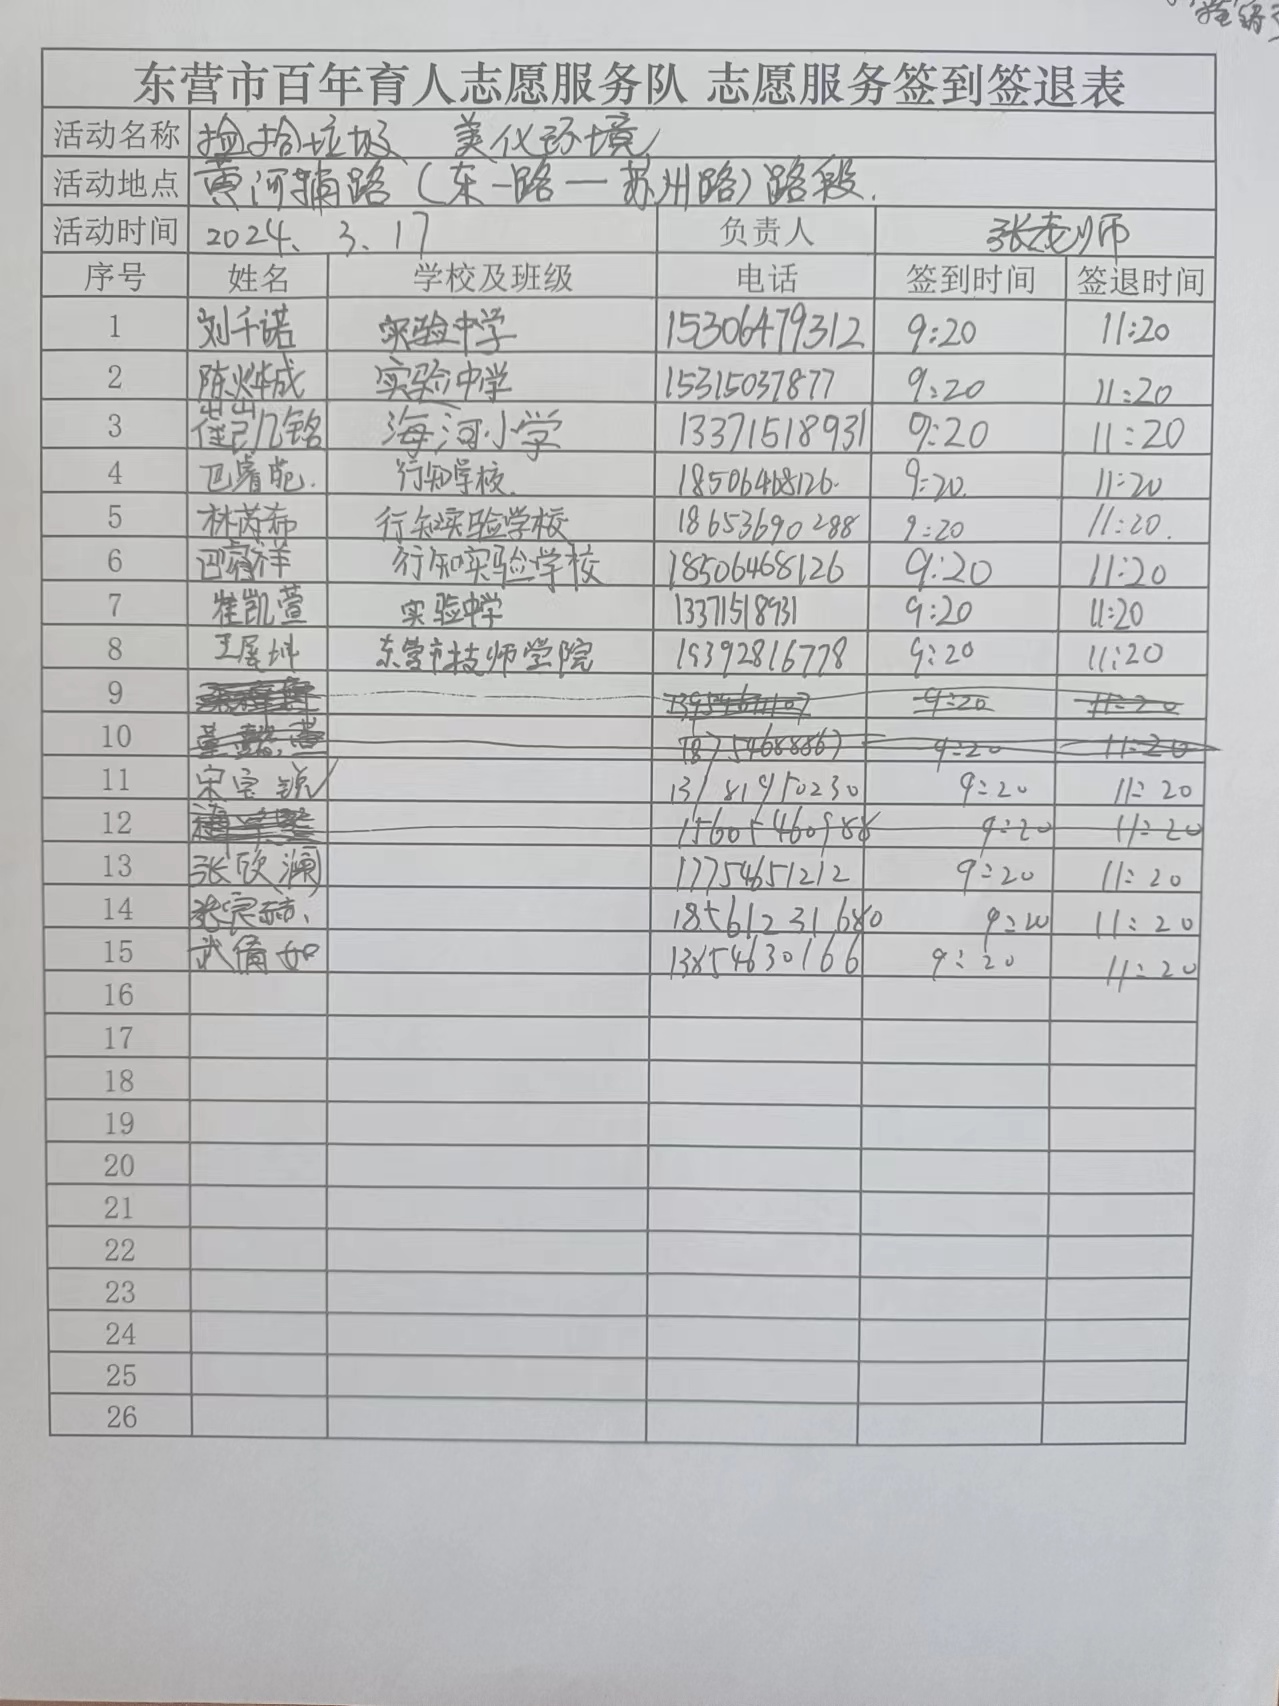 东营市百年育人志愿服务队 志愿服务签到签退表
活动名称 捡拾垃圾 美化环境
活动地点 黄河辅路(东一路一苏州路)路段.
活动时间 2024、3、17 负责人 张老师
序号 姓名 学校及班级 电话 签到时间 签退时间
1 刘千诺 实验中学 15306479312 9:20 11:20
2 陈烨城 实验中学 15315037877 9:20 11:20
3 崔凯铭 海河小学 13371518931 9:20 11:20
4 巴睿苑. 行知学校. 18506468126. 9:20. 11:20
5 林芮希 行知实验学校 18653690288 9:20 11:20.
6 巴睿祥 行知实验学校 18506468126 9:20 11:20
7 崔凯萱 实验中学 13371518931 9:20 11:20
8 东营市技师学院 19392816778 9:20 11:20
9 9:20 11:20
10 18754688867 9:20 11:20
11 宋 13181950230 9:20 11:20
12 15605460988 9:20 11:20
13 张欣澜 17754651212 9:20 11:20
14 张 18561231680 9:20 11:20
15 武倩如 13854630166 9:20 11:20
16
17
18
19
20
21
22
23
24
25
26